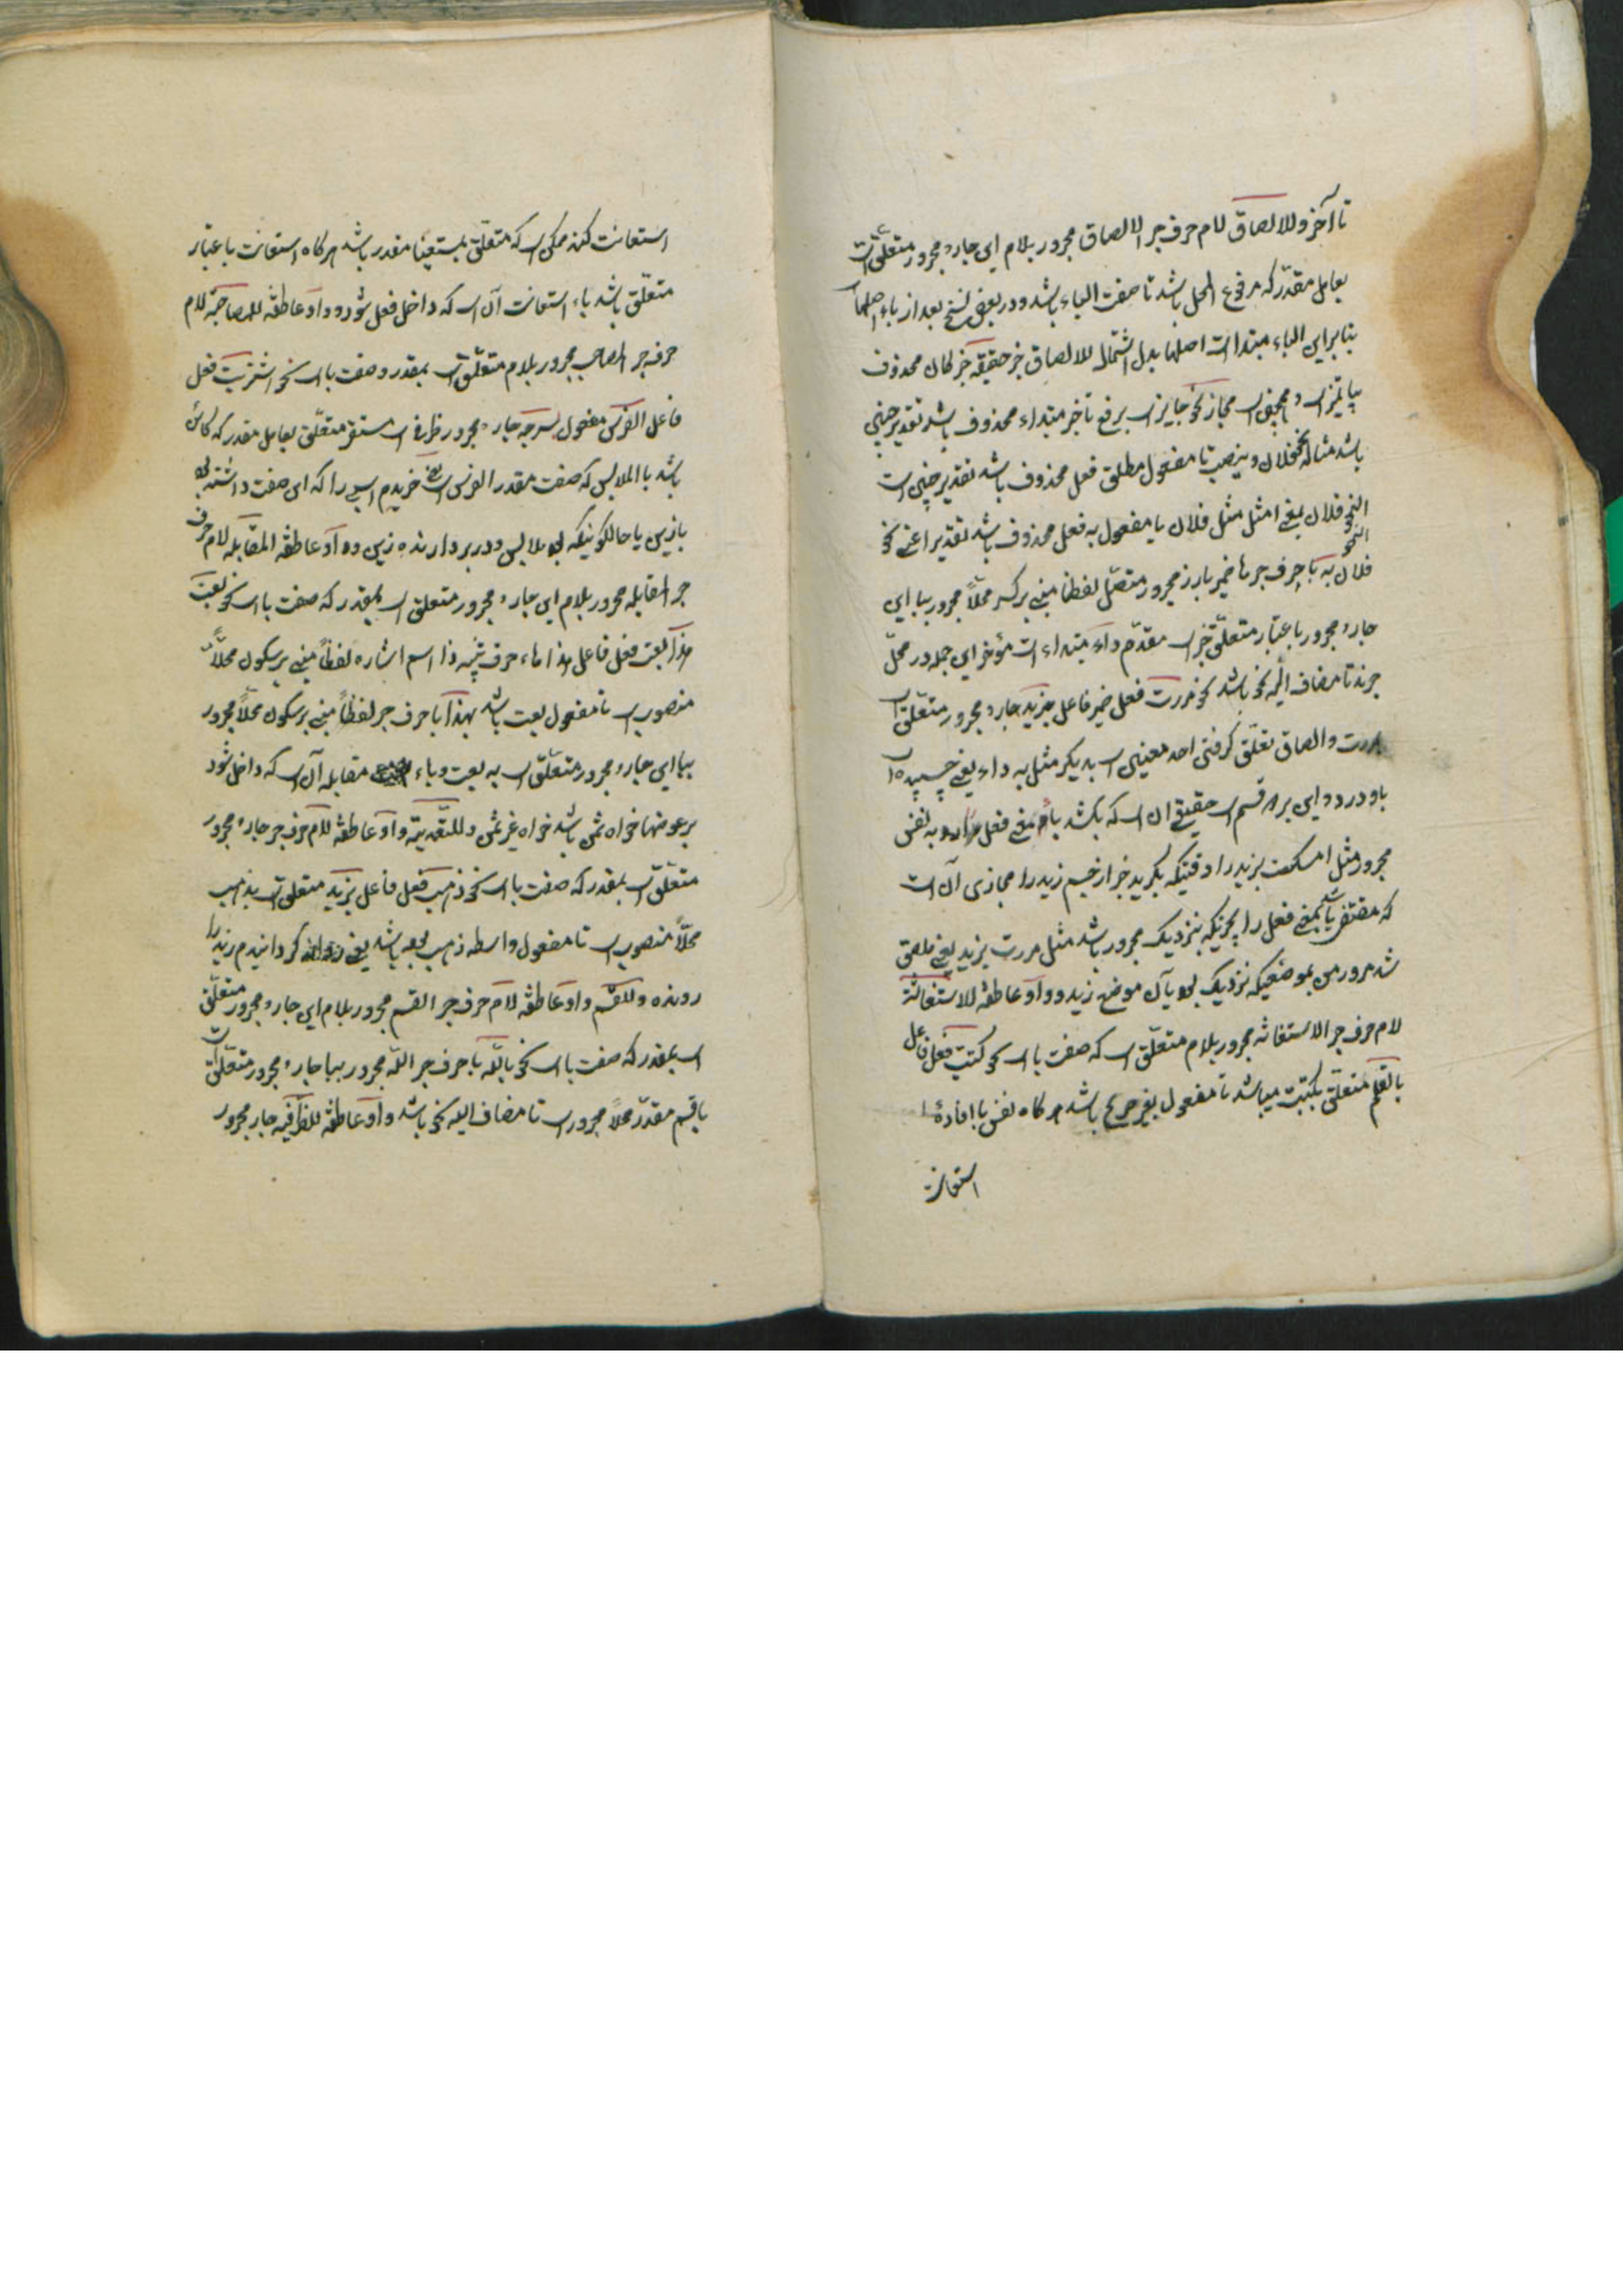 تا آخر وللالصاق لام حرف جر الالصاق مجرور بلام ای جار و مجرور متعلق است
بعامل مقدر که مرفوع المحل باشد تا صفت الباء باشد و در بعض نسخ بعد از باء اصلها
بنابراین الباء مبتدا است اصلها بدل اشتمال للالصاق خبر حقیقة خبر کان محذوف
یا تمیز است مجاز نحو جایز است برفع تا خبر مبتداء محذوف باشد تقدیر چنین
باشد مثاله نحو فلان و بنصب تا مفعول مطلق فعل محذوف باشد تقدیر چنین است
النحو فلان یعنی امثل مثل فلان یا مفعول به فعل محذوف باشد تقدیر اعنی نحو
فلان به با حرف جر ها ضمیر بارز مجرور متصل لفظا مبنی بر کسر محلاً مجرور ببا این
جار و مجرور باعتبار متعلق خبر است مقدم داء مبتداء است مؤخر این جمله در محل
جرند تا مضاف الیه نحو باشد نحو مررت فعل ضمیر فاعل بزید جار و مجرور متعلق است
بمررت والصاق تعلق گرفتن احد معنیین است بدیگر مثل به داء یعنی چسپیده است
باو درد و این بر دو قسم است حقیقی آن است که باشد باء معنی فعل به نفس
مجرور مثل امسکت بزید را وقتیکه بگیرید جزء از جسم زید را مجازی آن است
که مقتضی باشد معنی فعل را بچیزیکه بنزدیک مجرور باشد مثل مررت بزید یعنی ملصق
شد مرور من بموضعیکه نزدیک بود بآن موضع زید و واو عاطفه للاستعانة
لام حرف جر الاستعانه مجرور بلام متعلق است که صفت با است نحو کتبت فعل فاعل
بالقلم متعلق بکتبت میباشد تا مفعول بغیر صریح باشد هرگاه نفس با افادهٔ
استعانت
استعانت کند ممکن است که متعلق بمستعینا مقدر باشد هرگاه استعانت باعتبار
متعلق باشد باء استعانت آن است که داخل فعل شود و واو عاطفه للمصاحبة لام
حرف جر المصاحبه مجرور بلام متعلق است بمقدر وصفت با است نحو اشتریت فعل
فاعل الفرس مفعول بسرجه جار و مجرور ظرف است مستقر متعلق بعامل مقدر که کائن
باشد با الملابس که صفت مقدر الفرس است یعنی خریدم اسبی را که این صفت داشته بود
بازین یا حالکونیکه بود ملابس و در بردارنده زین و واو عاطفه المقابله لام حرف
جر المقابله مجرور بلام این جار و مجرور متعلق است بمقدر که صفت با است نحو بعت
هذا بعت فعل فاعل هذا هاء حرف تنبیه ذا اسم اشاره لفظاً مبنی بر سکون محلاً
منصوب است تا مفعول بعت باشد بهذا با حرف جر لفظاً مبنی بر سکون محلاً مجرور
ببا این جار و مجرور متعلق است به بعت و باء مقابله آن است که داخل شود
بر عوضها خواه ثمن باشد خواه غیر ثمن وللتعدیة واو عاطفه لام حرف جر جار و مجرور
متعلق است بمقدر که صفت با است نحو ذهبت فعل فاعل بزید متعلق است بذهبت
محلاً منصوب است تا مفعول واسطه ذهبت باشد یعنی گردانیدم زید را
رونده وللقسم واو عاطفه لام حرف جر القسم مجرور بلام این جار و مجرور متعلق
است بمقدر که صفت با است نحو بالله با حرف جر الله مجرور ببا جار و مجرور متعلق است
باقسم مقدر محلاً مجرور است تا مضاف الیه نحو باشد واو عاطفه للظرفیه جار مجرور